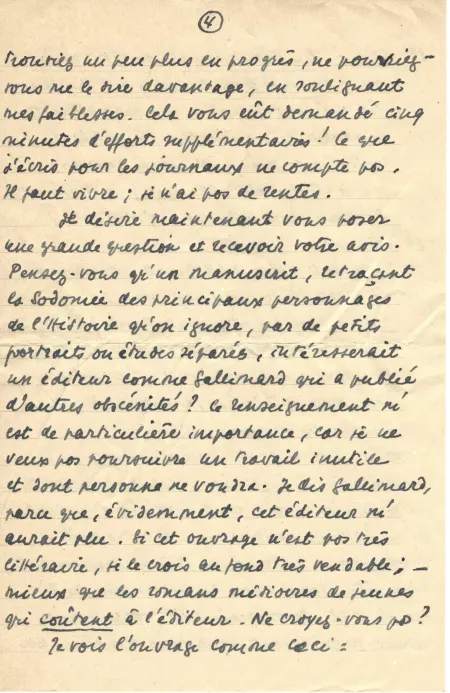 4
trouviez un peu plus en progrès, ne pourriez-
vous me le dire davantage, en soulignant
mes faiblesses. Cela vous eût demandé cinq
minutes d'efforts supplémentaires! Ce que
j'écris pour les journaux ne compte pas.
Il faut vivre; je n'ai pas de rentes.
Je désire maintenant vous poser
une grande question et recevoir votre avis.
Pensez-vous qu'un manuscrit, retraçant
la Sodomie des principaux personnages
de l'Histoire qu'on ignore, par de petits
portraits ou études séparés, intéresserait
un éditeur comme Gallimard qui a publié
d'autres obscénités? Ce renseignement m'
est de particulière importance, car je ne
veux pas poursuivre un travail inutile
et dont personne ne voudra. Je dis Gallimard,
parce que, évidemment, cet éditeur m'
aurait plu. Si cet ouvrage n'est pas très
littéraire, je le crois au fond très vendable; -
mieux que les romans médiocres de jeunes
qui coûtent à l'éditeur. Ne croyez-vous pas?
Je vois l'ouvrage comme ceci =